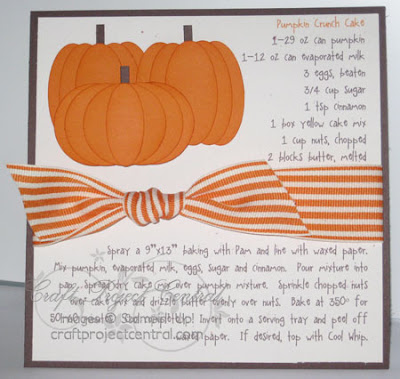 Pumpkin Crunch Cake
1-29 oz can pumpkin
1-12 oz can evaporated milk
3 eggs, beaten
3/4 cup sugar
1 tsp cinnamon
1 box yellow cake mix
1 cup nuts, chopped
2 blocks butter, melted
Spray a 9"x13" baking with Pam and line with waxed paper.
Mix pumpkin, evaporated milk, eggs, sugar and cinnamon. Pour mixture into
pan. Spread dry cake mix over pumpkin mixture. Sprinkle chopped nuts
over cake mix and drizzle butter evenly over nuts. Bake at 350° for
50 Invert onto a serving tray and peel off
waxed paper. If desired, top with Cool Whip.
Craft Project Central
Images © Stampin' Up!
craftprojectcentral.com